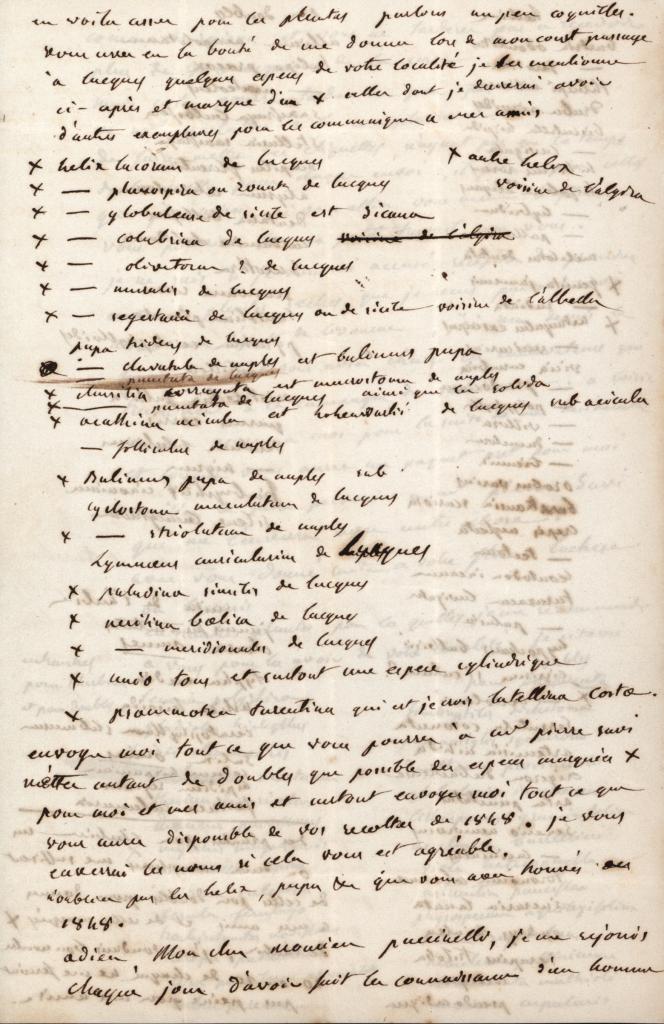 en voila assez pour les plantes parlons un peu coquilles.
vous avez eu la bonté de me donner lors de mon court passage
à lucques quelques especes de votre localité je les mentionne
ci-après et marque d'un × celles dont je desirerai avoir
d'autres exemplaires pour les communiquer a mes amis
× helix lucorum de lucques × autre helix
voisine de l'algira
× — planospira ou zonata de lucques
× — globuleuse de sicile est sicana
× — colubrina de lucques voisine de l'algira
× — olivetorum ? de lucques
× — muralis de lucques
× — segestana de lucques ou de sicile voisine de l'albella
pupa tridens de lucques
— clavatula de naples est bulimus pupa
— punctata de lucques
× clausilia corrugata est macrostoma de naples
× — punctata de lucques ainsi que la solida
× acathina acicula et hohenwarthi de lucques sub acicula
— folliculus de naples
× Bulimus pupa de naples sub
cyclostoma maculatum de lucques
× — striolatum de naples
Lymnoeus auricularius de Lucques
× paludina similis de lucques
× neritina bœtica de lucques
× — meridionalis de lucques
× unio tous et surtout une espece cylindrique
× psammotea tarentina qui est je crois la tellina costæ.
envoyez moi tout ce que vous pourrez à mr pierre savi
mettez autant de doubles que possible des especes marquées ×
pour moi et mes amis et surtout envoyez moi tout ce que
vous aurez disponible de vos recoltes de 1848. je vous
enverrai les noms si cela vous est agréable.
n'oubliez pas les helix, pupa &c que vous avez trouvés en
1848.
adieu Mon cher monsieur puccinelli, je me rejouis
chaque jour d'avoir fait la connaissance d'un homme